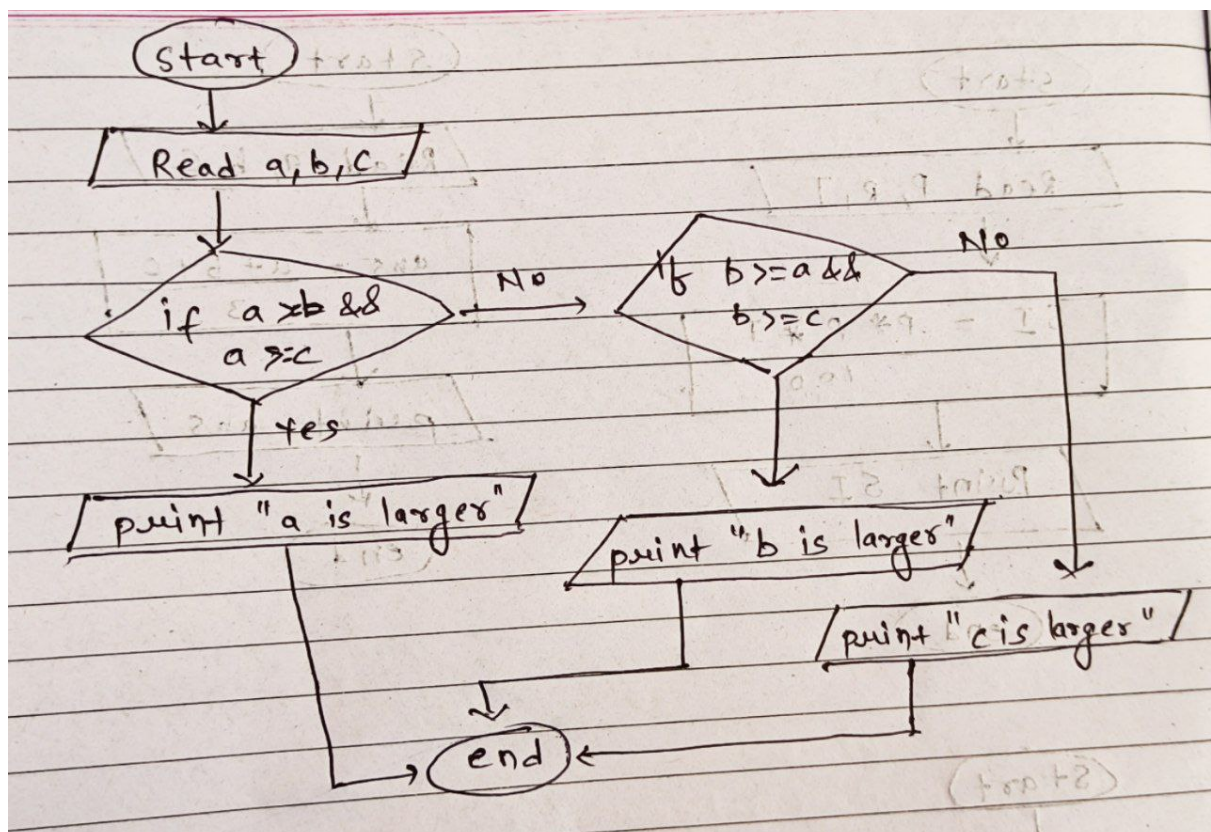 Start
Read a, b, c
if a >b &&
a >=c
No
if b >=a &&
b >=c
No
Yes
print "a is larger"
print "b is larger"
print "c is larger"
end